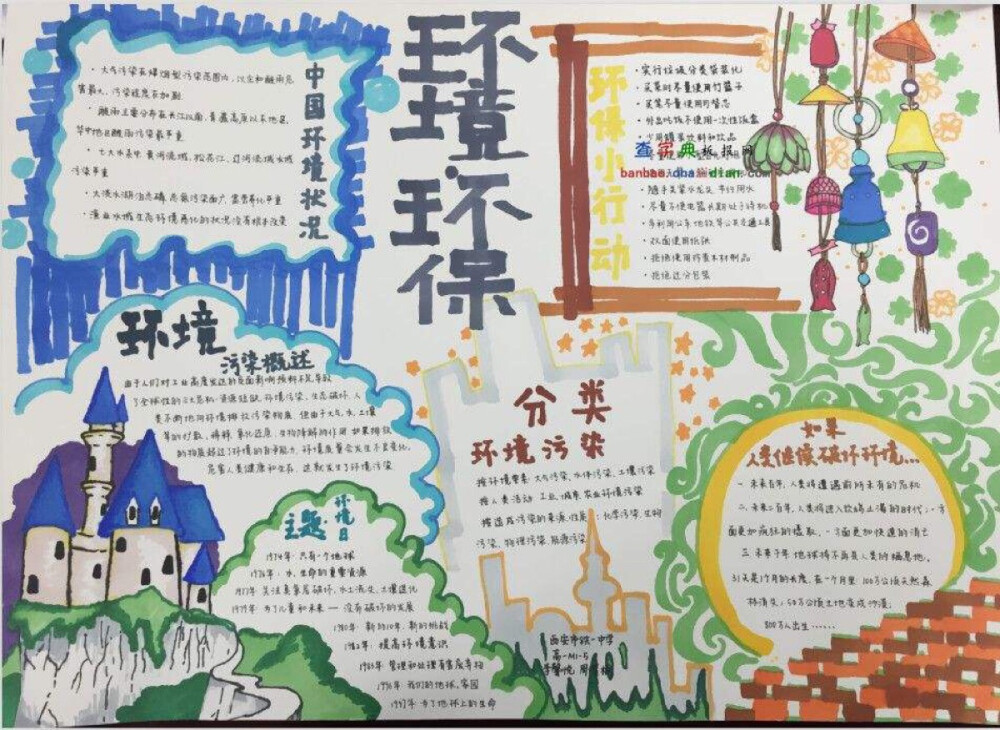 中国环境状况
· 大气污染在煤烟型污染范围内,以尘和酸雨危
害最大,污染程度在加剧
· 酸雨主要分布在长江以南,青藏高原以东地区,
华中地区酸雨污染最严重
· 七大水系中黄河流域,松花江,辽河流域水域
污染严重
· 大淡水湖泊总磷,总氮污染面广,富营养化重
· 渔业水域生态环境恶化的状况没有根本改变
环境.环保
环保小行动
· 实行垃圾分类袋装化
· 买菜时尽量使用竹篮子
· 尽量使用可替芯
· 外出吃饭不使用一次性饭盒
· 少用罐装饮料和饮品
查字典板报网
banbao.chazidian.com
· 随手关紧水龙头 节约用水
· 尽量不使电器长期处于待机
· 多利用公车地铁等公共交通工具
· 双面使用纸张
· 拒绝使用珍贵木材制品
· 拒绝过分包装
环境
污染概述
由于人们对工业高度发达的负面影响预料不足,导致
了全球性的三大危机:资源短缺,环境污染,生态破坏.人
类不断地向环境排放污染物质,但由于大气,水,土壤
等的扩散,稀释,氧化还原,生物降解的作用.如果排放
的物质超过了环境的自净能力,环境质量会发生不良变化,
危害人类健康和生存,这就发生了环境污染
环境日
主题
1974年:只有一个地球
1976年:水,生命的重要资源
1977年:关注臭氧层破坏,水土流失,土壤退化
1979年:为了儿童和未来——没有破坏的发展
1980年:新的10年,新的挑战
1982年:提高环境意识
1983年:管理和处理有害废弃物
我们的地球,家园
1997年:为了地球上的生命
分类
环境污染
按环境要素:大气污染,水体污染,土壤污染
按人类活动:工业,城市,农业环境污染
按造成污染的来源,性质:化学污染,生物
污染,物理污染,能源污染
西安市铁一中学
高一
如果
人类继续破坏环境...
一.未来百年,人类将遭遇前所未有的危机
二.未来三百年,人类将进入饮鸩止渴的时代:一方
面更加疯狂的攫取,一方面更加快速的消亡
三.未来千年,地球将不再是人类的栖息地.
31天是1个月的长度,在一个月里:100万公顷天然森
林消失;50万公顷土地变成沙漠;
800万人出生......